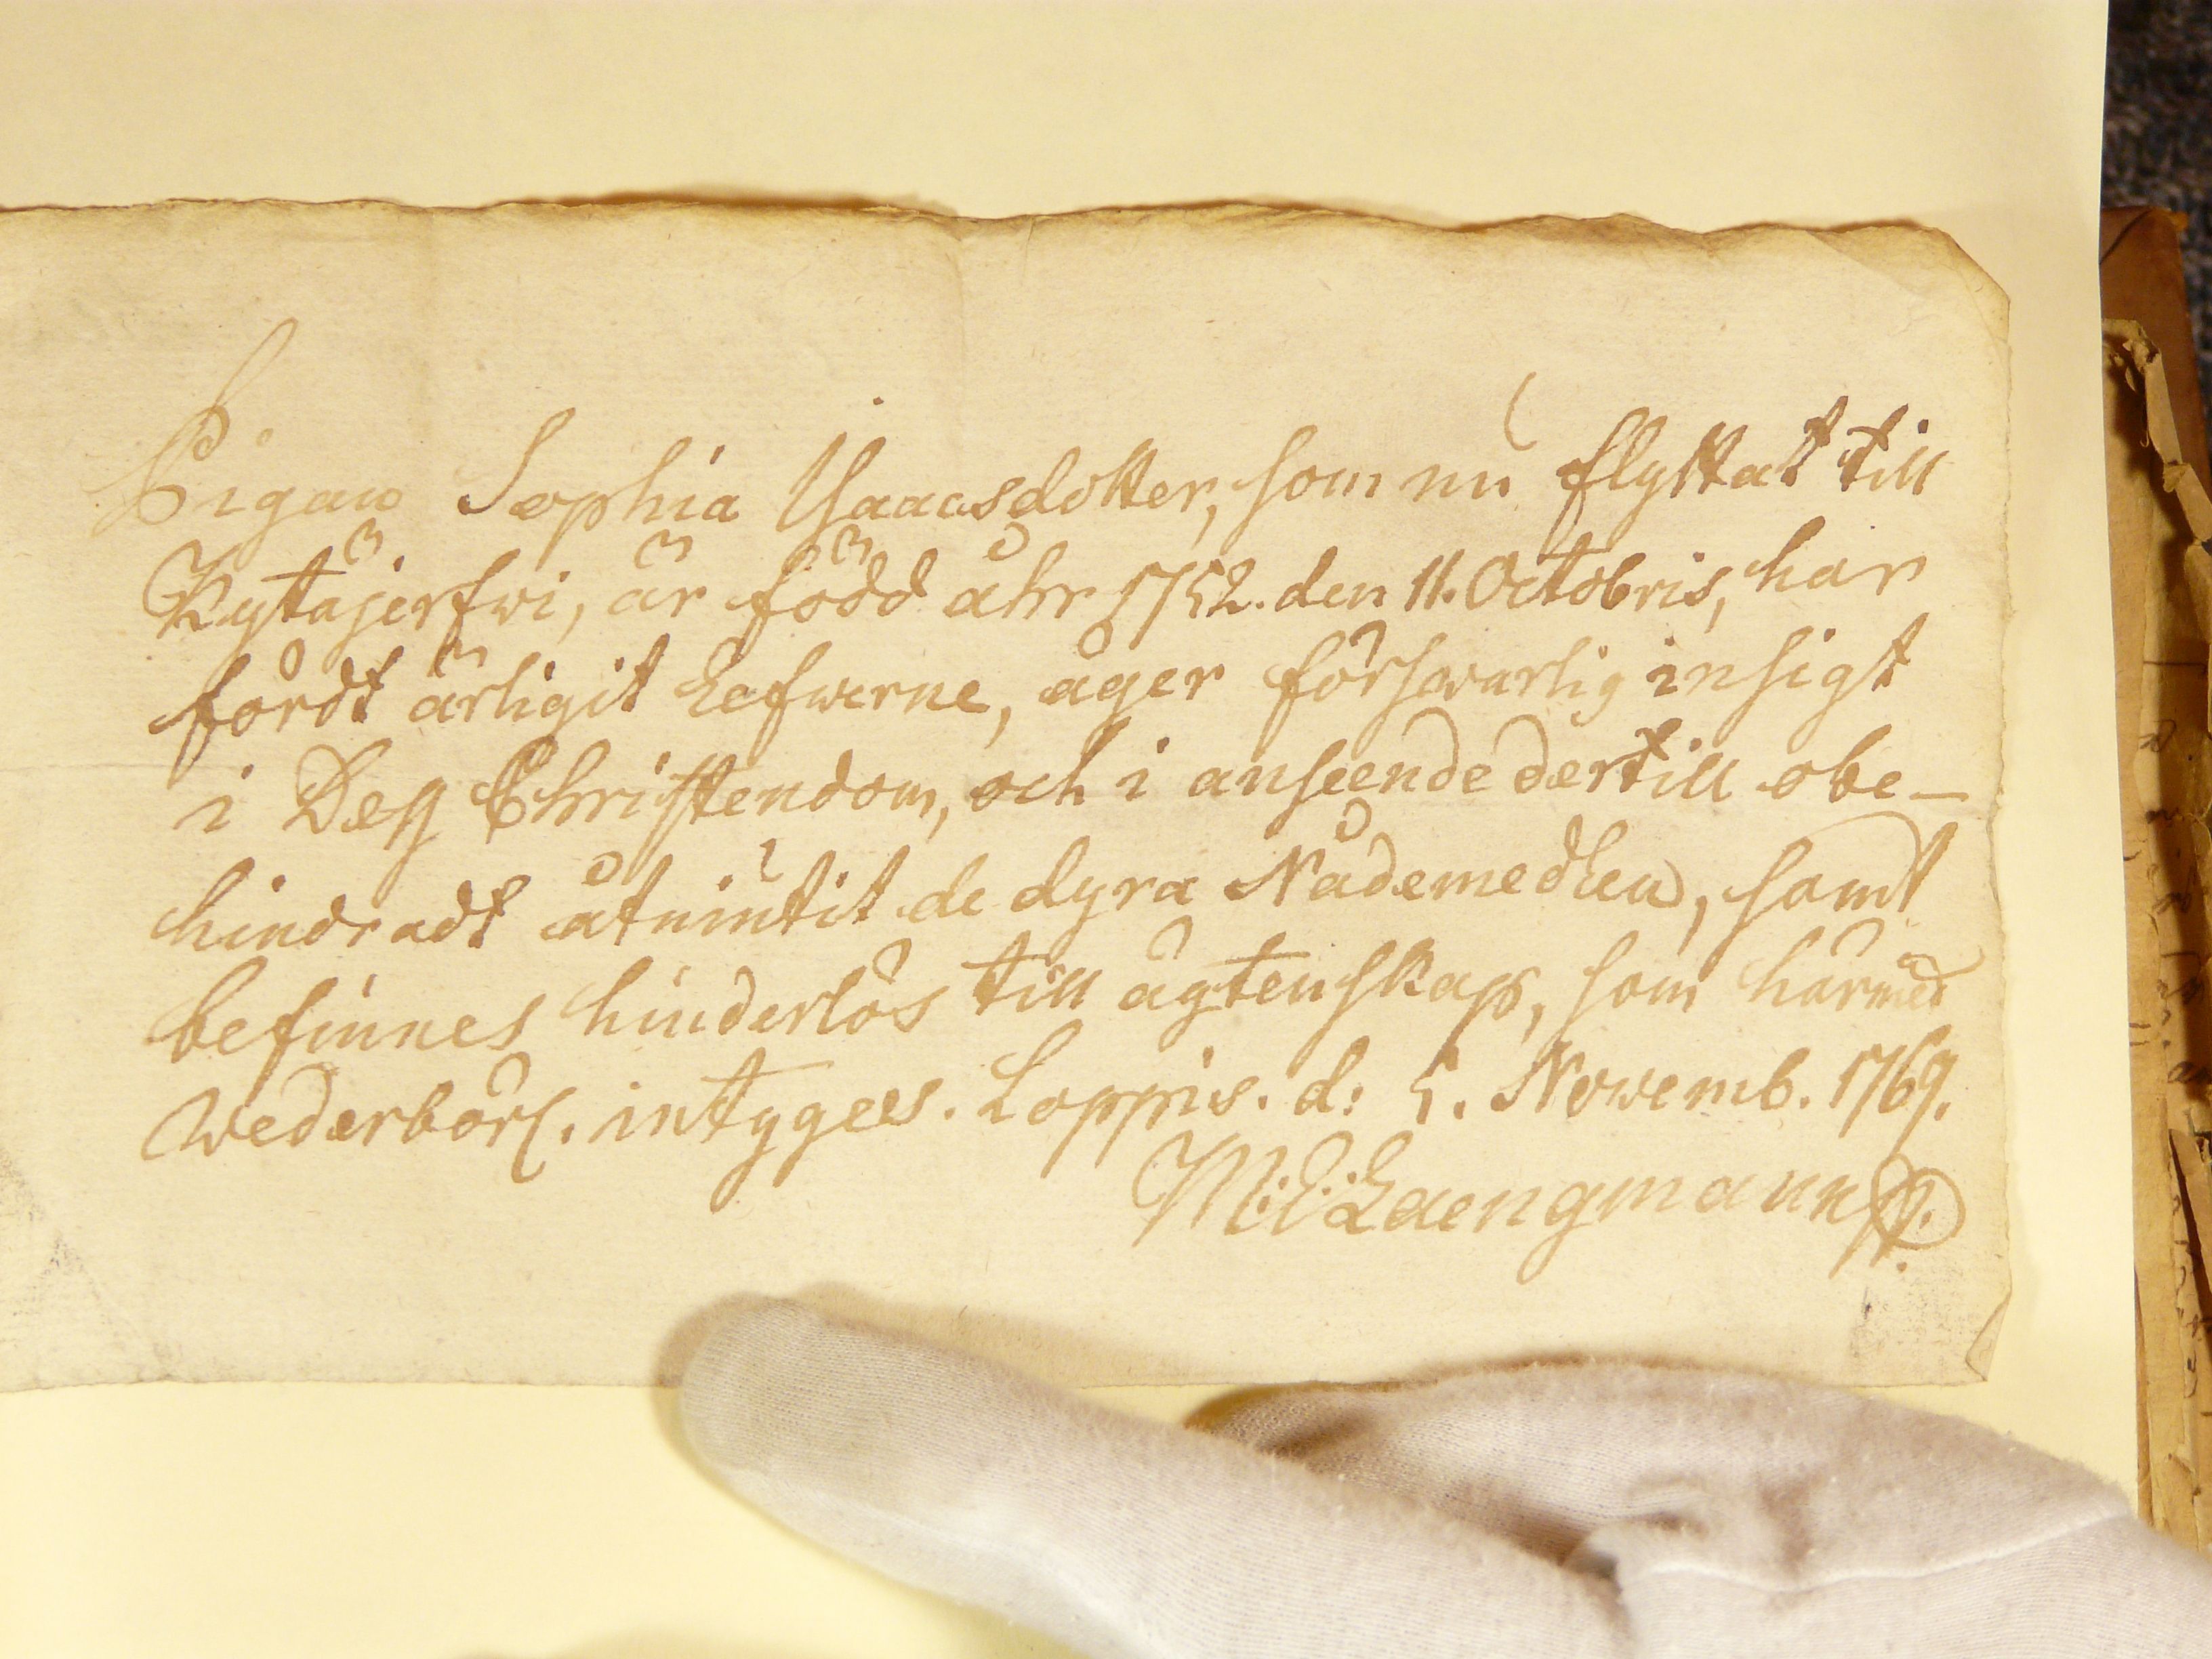 Pigan Sophia Isaacsdotter, som nu flyttat till
Kytäjerfwi, är född åhr 1752. den 11. Octobris, har
fördt ärligit Lefwerne, äger försvarlig insigt
i Deß Christendom, och i anseende dertill obe-
hindradt åtniutit de dyra Nådemedlen, samt
befinnes hinderlös till ägtenskap, som härmed
wederbörl. intygees. Loppis. d: 5. Novemb. 1769.
Mich: Laengmann